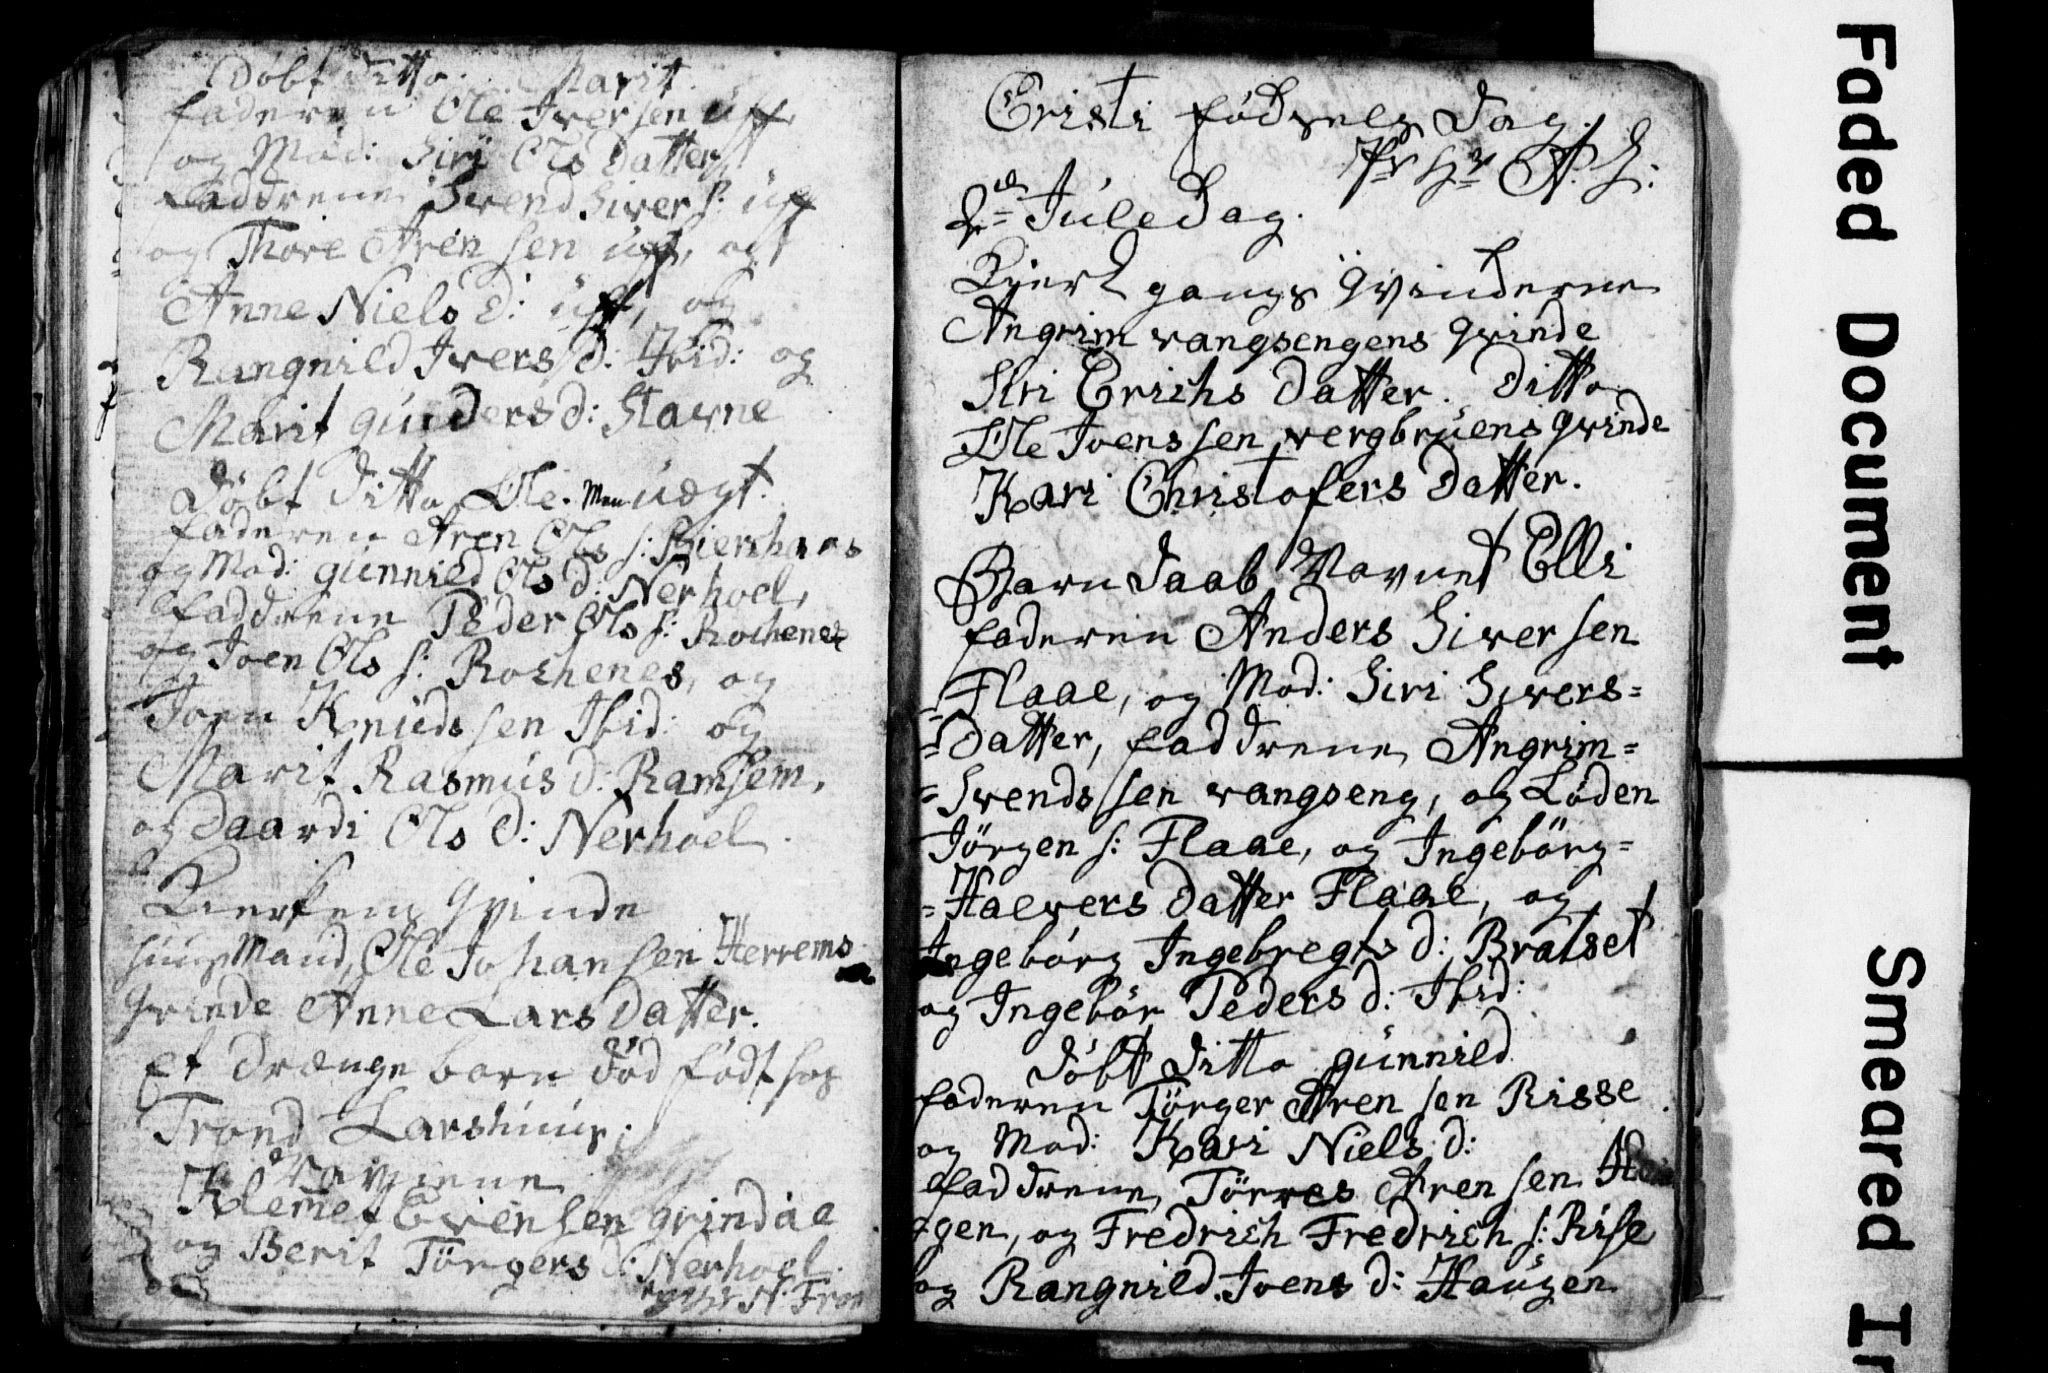 Døbt ditto. Marit.
faderen Ole Iversen uff
og Mod: Siri Ols Datter
faddrene Svend Siver s: uff
og Thore Aren sen uff, og
Anne Niels d: uff, og
Rangnild Ivers d: Ibid: og
Marit Gunders d: Stavne
Døbt ditto Ole. Men uægt.
faderen Aren Ols s:
og Mod: Gunnild Ols d: Nerhoel,
faddrene Peder Ols s: Rochenes
og Joen Ols s: Rochenes, og
Joen Knuds sen Ibid: og
Marit Rasmus d: Ramsem,
og Daardi Ols d: Nerhoel.
Qvinde
huus Mand, Ole Johan sen Herrems
Qvinde Anne Lars Datter.
Et Drænge barn død født hos
Trond Larshuus;
Klemet Evensen Grindae
og Berit Törgers d: Nerhoel.
Cristi fødsels Dag.
Pr Hr A. H:
2den Jule Dag.
Kierk gangs Qvinderne
Angrim vangsengens Qvinde
Siri Erichs Datter. Ditto
Ole Joens sen vergbruens Qvinde
Kari Christofers Datter.
Barn Daab Navnet Elli
faderen Anders Siver sen
Flaae, og Mod: Siri Sivers=
=Datter, faddrene Angrim=
=Svends sen vangseng, og Loden
Jörgen s: Flaae, og Ingebörg=
=Halvers Datter Flaae, og
Ingebörg Ingebregts d: Bratset
og Ingebör Peders d: Ibid:
Døbt ditto Gunnild
faderen Törger Aren sen Risse
og Mod: Kari Niels d:
faddrene Törres Aren sen
gen, og Fredrich Fredrich s: Rise
og Rangnild Joens d: Haugen
Faded Document
Smeared In